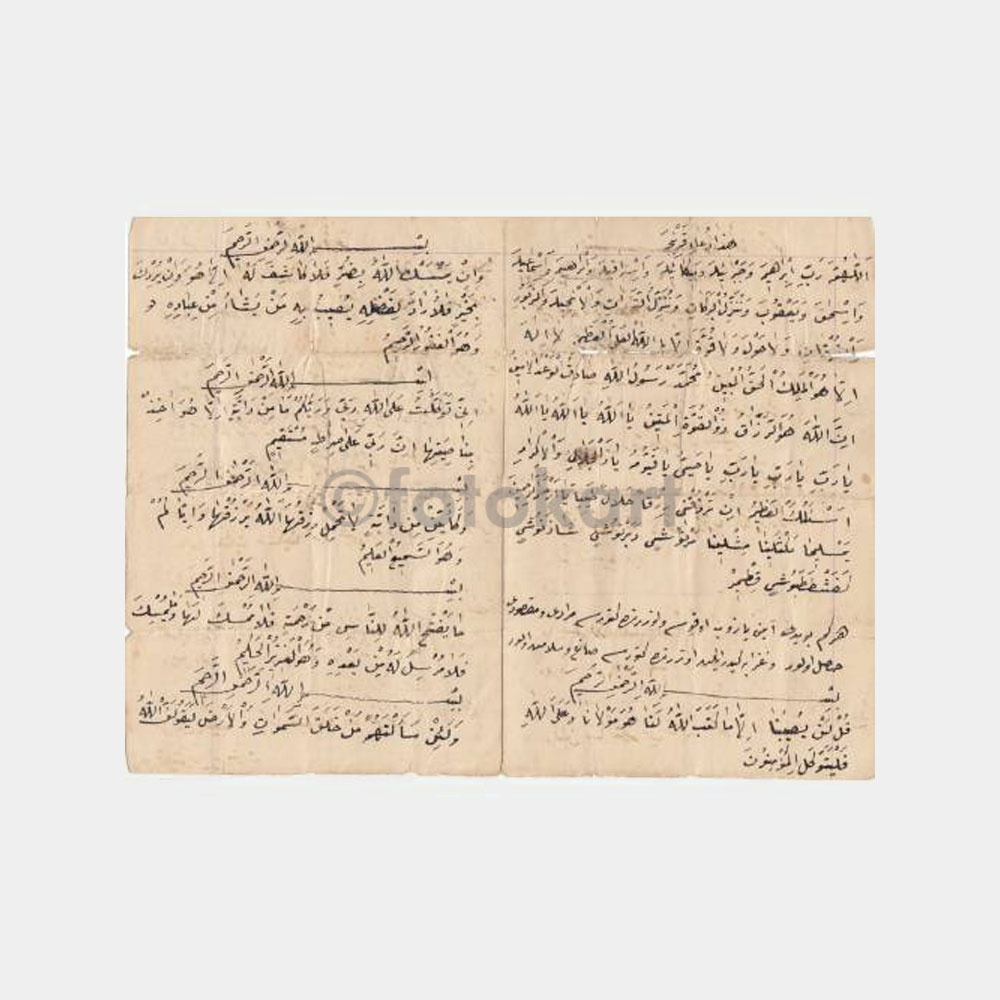 هذا دعاء قرنجه
اَللّٰهُمَّ رَبَّ اِبْرٰهِيمَ وَجَبْرَائِيلَ وَمِيكَائِيلَ وَاِسْرَافِيلَ وَاِبْرٰهِيمَ وَاِسْمَاعِيلَ
وَاِسْحٰقَ وَيَعْقُوبَ وَمُنْزِلَ الْبَرَكَاتِ وَمُنْزِلَ التَّوْرَاتِ وَالْاِنْجِيلَ وَالزَّبُورَ
وَالْفُرْقَانَ وَلَا حَوْلَ وَلَا قُوَّةَ اِلَّا بِاللّٰهِ الْعَلِيِّ الْعَظِيمِ لَا اِلٰهَ
اِلَّا هُوَ الْمَلِكُ الْحَقُّ الْمُبِينُ مُحَمَّدٌ رَسُولُ اللّٰهِ صَادِقُ الْوَعْدِ الْاَمِينُ
اِنَّ اللّٰهَ هُوَ الرَّزَّاقُ ذُو الْقُوَّةِ الْمَتِينُ يَا اَللّٰهُ يَا اَللّٰهُ يَا اَللّٰهُ
يَا رَبِّ يَا رَبِّ يَا رَبِّ يَا حَيُّ يَا قَيُّومُ يَا ذَا الْجَلَالِ وَالْاِكْرَامِ
اَسْئَلُكَ الْعَظِيمُ اَنْ تَرْزُقَنِي رِزْقًا حَلَالًا طَيِّبًا
يَمْلِيخَا مَكْثَلِينَا مِثْلِينَا مَرْنُوشْ دَبَرْنُوشْ شَاذَنُوشْ
كَفَشْطَطَيُوشْ قِطْمِيرْ
هركم بو دعايى يازوب اوقوسه مرادى و مقصودى
حاصل اولور
بِسْــمِ اللّٰهِ الرَّحْمٰنِ الرَّحِيمِ
قُلْ لَنْ يُصِيبَنَا اِلَّا مَا كَتَبَ اللّٰهُ لَنَا هُوَ مَوْلَانَا وَعَلَى اللّٰهِ
فَلْيَتَوَكَّلِ الْمُؤْمِنُونَ
بِسْــمِ اللّٰهِ الرَّحْمٰنِ الرَّحِيمِ
وَاِنْ يَمْسَسْكَ اللّٰهُ بِضُرٍّ فَلَا كَاشِفَ لَهُ اِلَّا هُوَ وَاِنْ يُرِدْكَ
بِخَيْرٍ فَلَا رَادَّ لِفَضْلِهِ يُصِيبُ بِهِ مَنْ يَشَاءُ مِنْ عِبَادِهِ
وَهُوَ الْغَفُورُ الرَّحِيمُ
بِسْــمِ اللّٰهِ الرَّحْمٰنِ الرَّحِيمِ
اِنِّي تَوَكَّلْتُ عَلَى اللّٰهِ رَبِّي وَرَبِّكُمْ مَا مِنْ دَابَّةٍ اِلَّا هُوَ اٰخِذٌ
بِنَاصِيَتِهَا اِنَّ رَبِّي عَلَى صِرَاطٍ مُسْتَقِيمٍ
بِسْــمِ اللّٰهِ الرَّحْمٰنِ الرَّحِيمِ
وَكَاَيِّنْ مِنْ دَابَّةٍ لَا تَحْمِلُ رِزْقَهَا اَللّٰهُ يَرْزُقُهَا وَاِيَّاكُمْ
وَهُوَ السَّمِيعُ الْعَلِيمُ
بِسْــمِ اللّٰهِ الرَّحْمٰنِ الرَّحِيمِ
مَا يَفْتَحِ اللّٰهُ لِلنَّاسِ مِنْ رَحْمَةٍ فَلَا مُمْسِكَ لَهَا وَمَا يُمْسِكْ
فَلَا مُرْسِلَ لَهُ مِنْ بَعْدِهِ وَهُوَ الْعَزِيزُ الْحَكِيمُ
بِسْــمِ اللّٰهِ الرَّحْمٰنِ الرَّحِيمِ
وَلَئِنْ سَاَلْتَهُمْ مَنْ خَلَقَ السَّمٰوَاتِ وَالْاَرْضَ لَيَقُولُنَّ اللّٰهُ
©fotokart